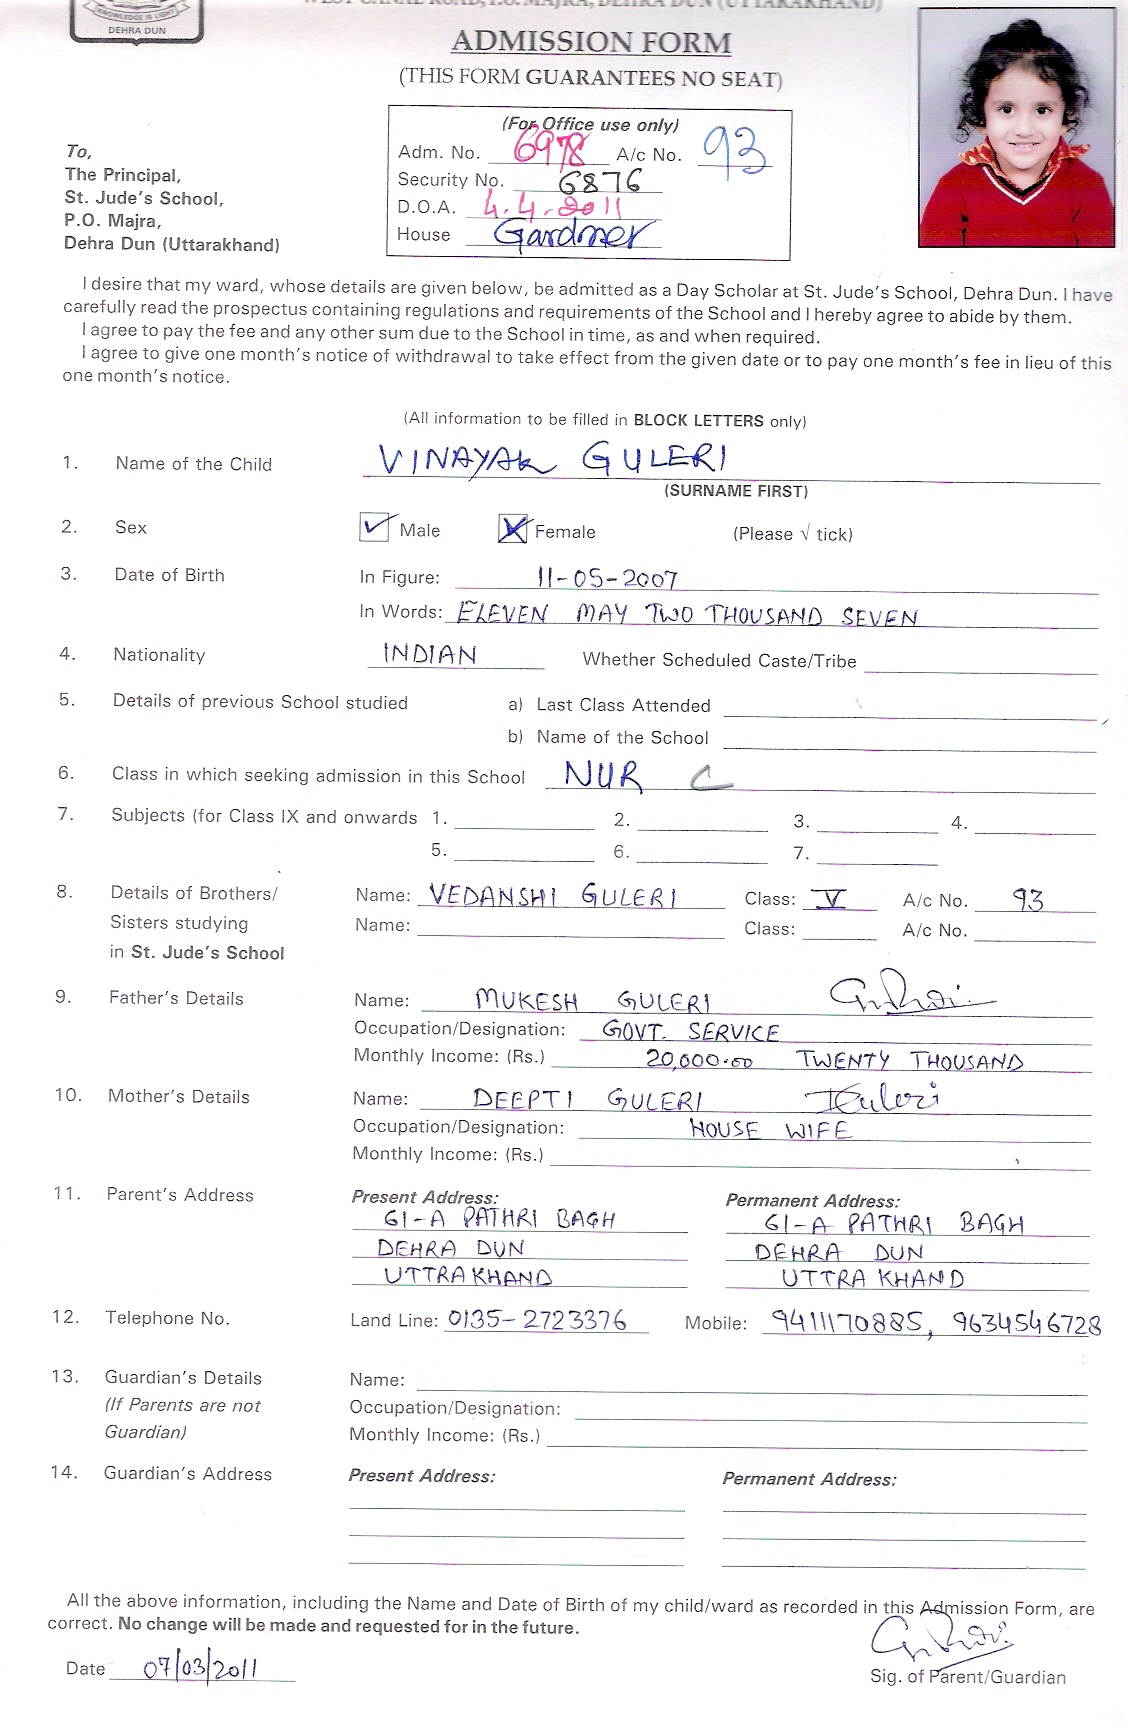 KNOWLEDGE IS LIGHT
DEHRA DUN
WEST CANAL ROAD, P.O. MAJRA, DEHRA DUN (UTTARAKHAND)
ADMISSION FORM
(THIS FORM GUARANTEES NO SEAT)
(For Office use only)
Adm. No. 6978 A/c No. 93
Security No. 6876
D.O.A. 4.4.2011
House Gardner
To,
The Principal,
St. Jude's School,
P.O. Majra,
Dehra Dun (Uttarakhand)
I desire that my ward, whose details are given below, be admitted as a Day Scholar at St. Jude's School, Dehra Dun. I have
carefully read the prospectus containing regulations and requirements of the School and I hereby agree to abide by them.
I agree to pay the fee and any other sum due to the School in time, as and when required.
I agree to give one month's notice of withdrawal to take effect from the given date or to pay one month's fee in lieu of this
one month's notice.
(All information to be filled in BLOCK LETTERS only)
1. Name of the Child VINAYAK GULERI
(SURNAME FIRST)
2. Sex Male Female (Please √ tick)
3. Date of Birth In Figure: 11-05-2007
In Words: ELEVEN MAY TWO THOUSAND SEVEN
4. Nationality INDIAN Whether Scheduled Caste/Tribe
5. Details of previous School studied a) Last Class Attended
b) Name of the School
6. Class in which seeking admission in this School NUR C
7. Subjects (for Class IX and onwards 1. 2. 3. 4.
5. 6. 7.
8. Details of Brothers/ Name: VEDANSHI GULERI Class: V A/c No. 93
Sisters studying Name: Class: A/c No.
in St. Jude's School
9. Father's Details Name: MUKESH GULERI
Occupation/Designation: GOVT. SERVICE
Monthly Income: (Rs.) 20,000.00 TWENTY THOUSAND
10. Mother's Details Name: DEEPTI GULERI DGuleri
Occupation/Designation: HOUSE WIFE
Monthly Income: (Rs.)
11. Parent's Address Present Address: Permanent Address:
61-A PATHRI BAGH 61-A PATHRI BAGH
DEHRA DUN DEHRA DUN
UTTRAKHAND UTTRAKHAND
12. Telephone No. Land Line: 0135-2723376 Mobile: 9411170885, 9634546728
13. Guardian's Details Name:
(If Parents are not Occupation/Designation:
Guardian) Monthly Income: (Rs.)
14. Guardian's Address Present Address: Permanent Address:
All the above information, including the Name and Date of Birth of my child/ward as recorded in this Admission Form, are
correct. No change will be made and requested for in the future.
Date 07/03/2011
Sig. of Parent/Guardian